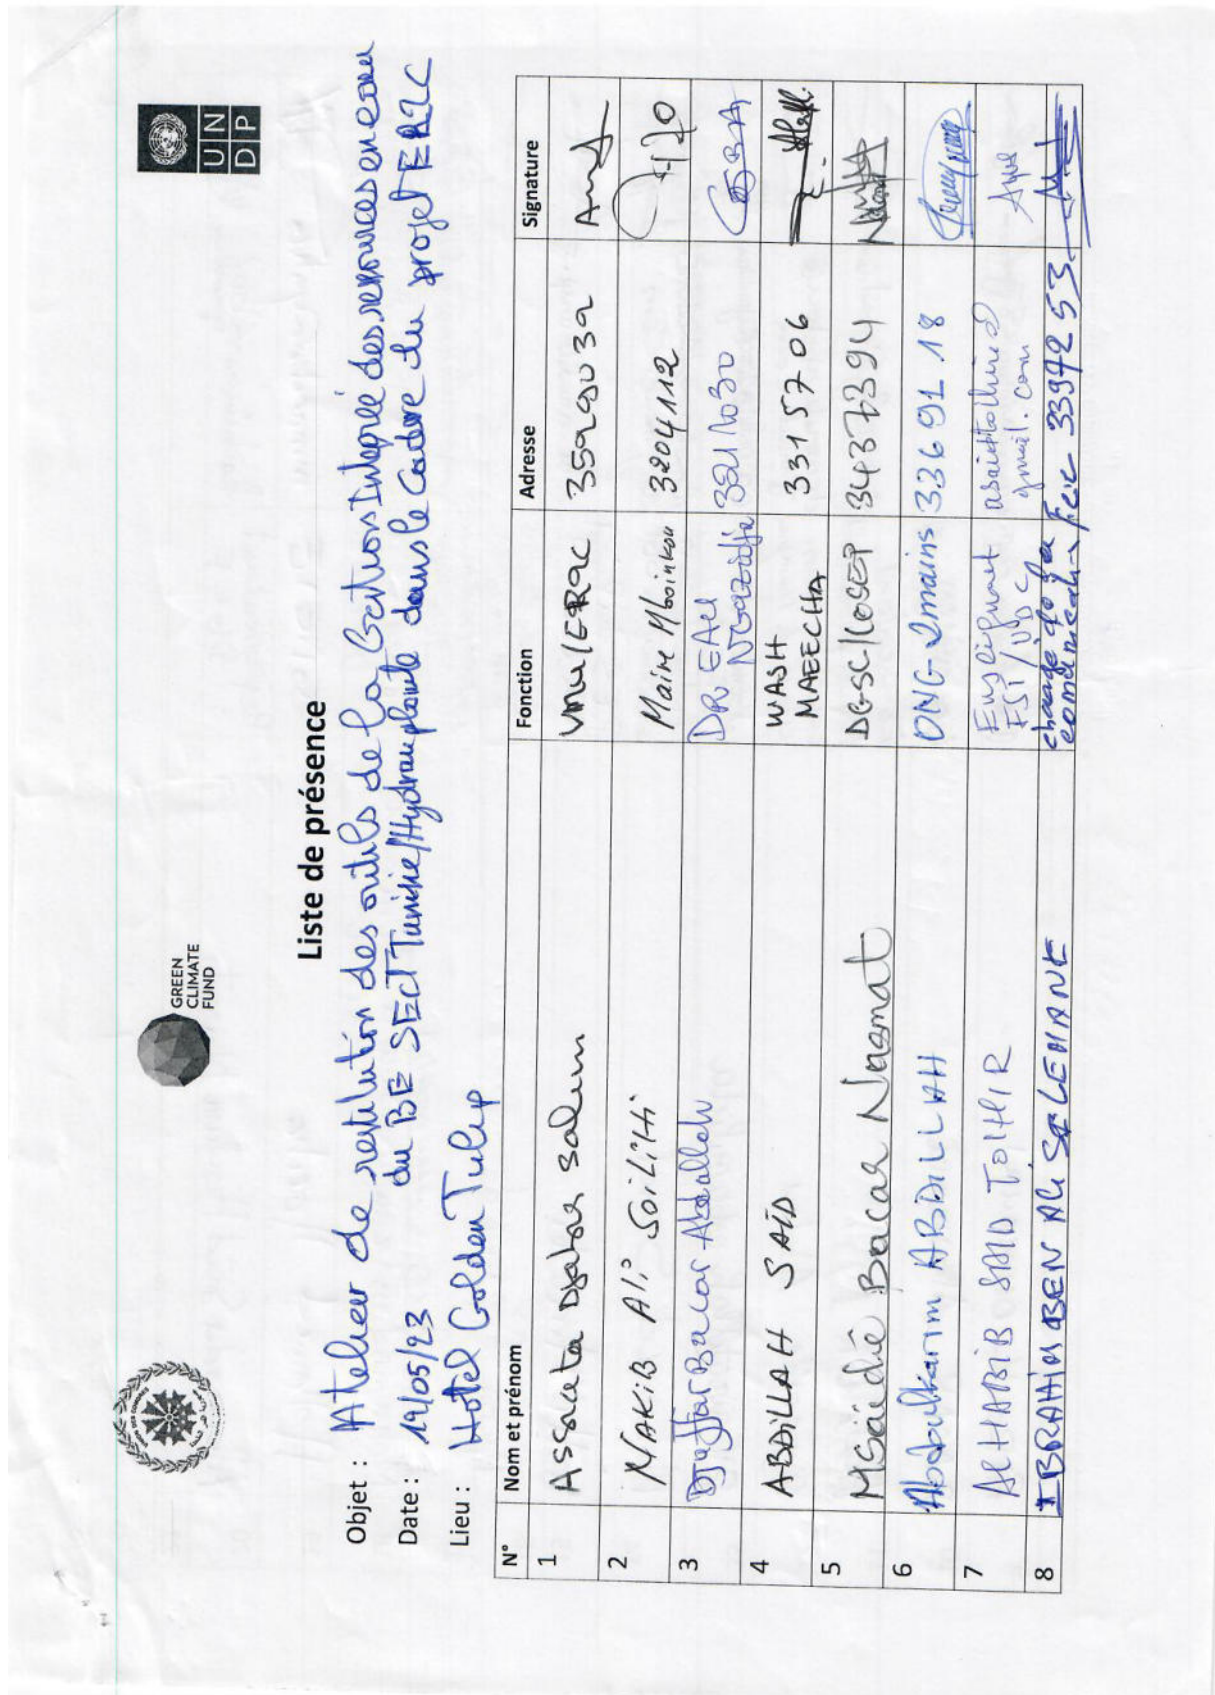 GREEN
CLIMATE
FUND
U N
D P
Liste de présence
Objet : Atelier de restitution des outils de la Gestion Intégrée des ressources en eau
du BE SECT Tunisie/Hydrauplante dans le Cadre du projet ER2C
Date : 19/05/23
Lieu : Hotel Golden Tulip
N° Nom et prénom Fonction Adresse Signature
1 Assaata Djabar Salum 3592903a
2 NAKIB Ali SOILIHI Maire Mboinkou 3204112
3 Djaffar Bacar Abdallah DR EAU
NGazidja 3211030
4 ABDILLAH SAÏD WASH
MAEECHA 331 57 06
5 MSaidié Bacar Nasmat DGSC/COSEP 3437394
6 Abdoulkarim ABDILLAH ONG-2mains 336 91 18
7 ALHABIB SAID TOIHIR Enseignant
FSI/UDC asaidtoihir@
gmail.com
8 IBRAHIM BEN Ali SELEMANE chargé de la
FCIC 3397253